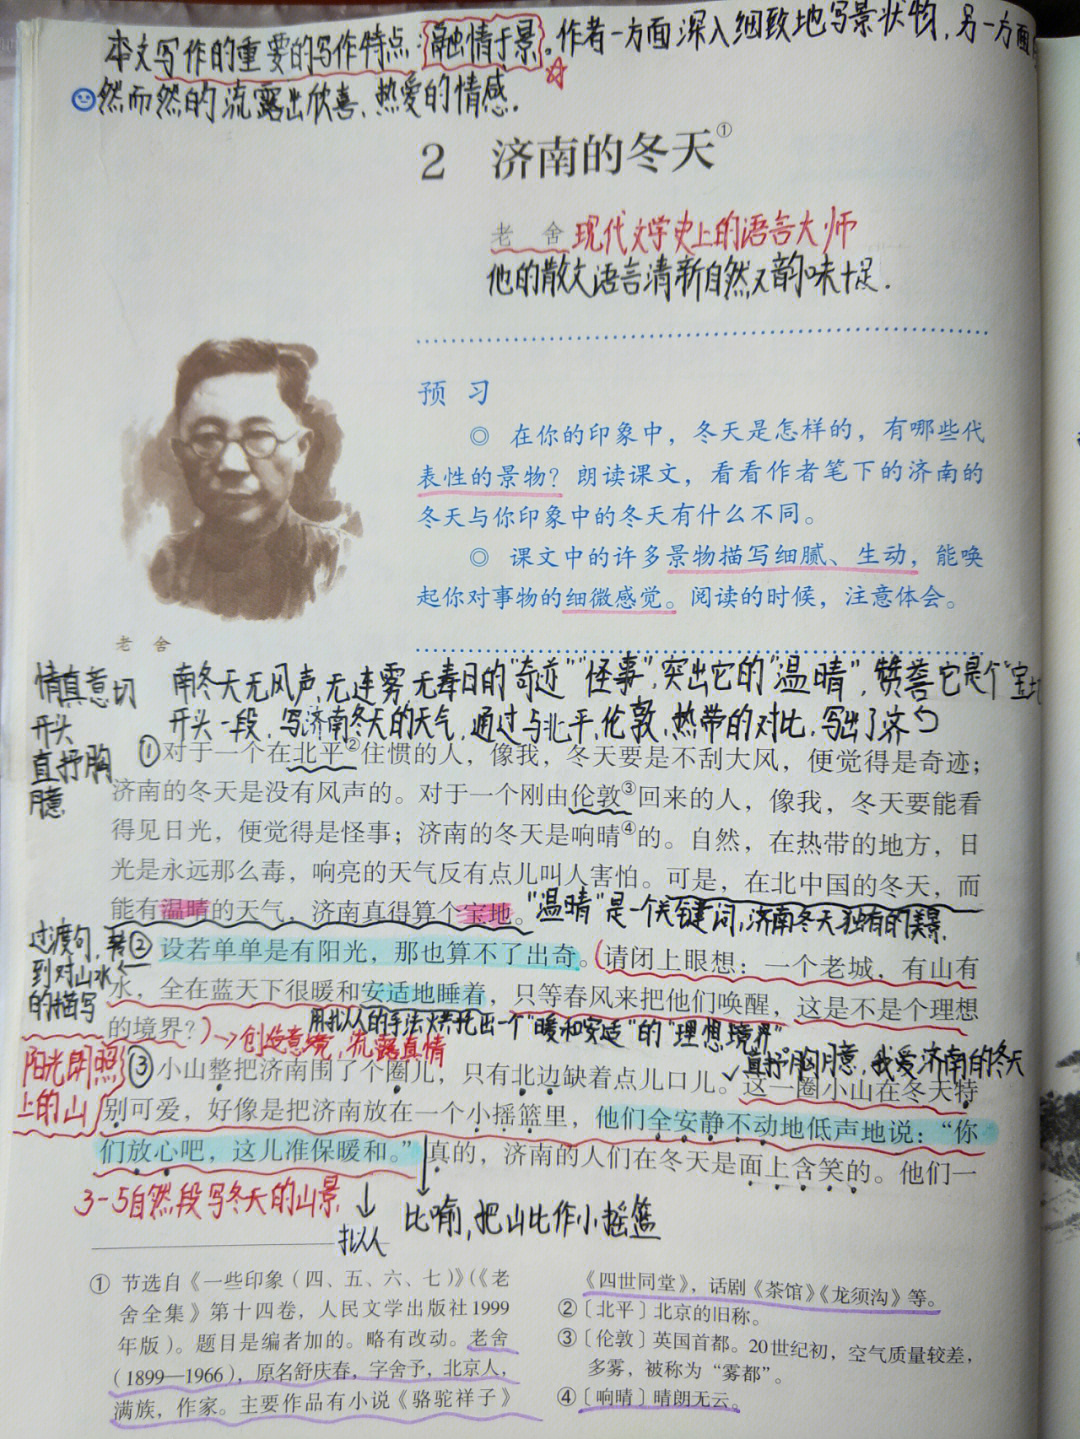 本文写作的重要的写作特点：融情于景。作者一方面深入细致地写景状物，另一方面
然而然的流露出欣喜、热爱的情感.
2 济南的冬天①
老 舍 现代文学史上的语言大师
他的散文语言清新自然又韵味十足.
预 习
◎ 在你的印象中，冬天是怎样的，有哪些代
表性的景物？朗读课文，看看作者笔下的济南的
冬天与你印象中的冬天有什么不同。
◎ 课文中的许多景物描写细腻、生动，能唤
起你对事物的细微感觉。阅读的时候，注意体会。
老 舍
情真意切
开头
直抒胸
臆
南冬天无风声,无连雾,无毒日的"奇迹""怪事",突出它的"温晴",赞誉它是个"宝地
开头一段,写济南冬天的天气,通过与北平,伦敦,热带的对比,写出了济
①对于一个在北平②住惯的人，像我，冬天要是不刮大风，便觉得是奇迹；
济南的冬天是没有风声的。对于一个刚由伦敦③回来的人，像我，冬天要能看
得见日光，便觉得是怪事；济南的冬天是响晴④的。自然，在热带的地方，日
光是永远那么毒，响亮的天气反有点儿叫人害怕。可是，在北中国的冬天，而
能有温晴的天气，济南真得算个宝地。
"温晴"是一个关键词,济南冬天独有的美景.
过渡句,转
到对山水
的描写
②设若单单是有阳光，那也算不了出奇。(请闭上眼想：一个老城，有山有
水，全在蓝天下很暖和安适地睡着，只等春风来把他们唤醒，这是不是个理想
的境界？)→创造意境,流露真情
用拟人的手法烘托出一个"暖和安适"的"理想境界"
直抒胸臆,我爱济南的冬天
阳光朗照
上的山
③小山整把济南围了个圈儿，只有北边缺着点儿口儿。✓这一圈小山在冬天特
别可爱，好像是把济南放在一个小摇篮里，他们全安静不动地低声地说：“你
们放心吧，这儿准保暖和。”真的，济南的人们在冬天是面上含笑的。他们一
3-5自然段写冬天的山景
拟人
比喻,把山比作小摇篮
① 节选自《一些印象（四、五、六、七）》（《老
舍全集》第十四卷，人民文学出版社1999
年版）。题目是编者加的。略有改动。老舍
（1899—1966），原名舒庆春，字舍予，北京人，
满族，作家。主要作品有小说《骆驼祥子》
《四世同堂》，话剧《茶馆》《龙须沟》等。
②〔北平〕北京的旧称。
③〔伦敦〕英国首都。20世纪初，空气质量较差，
多雾，被称为“雾都”。
④〔响晴〕晴朗无云。